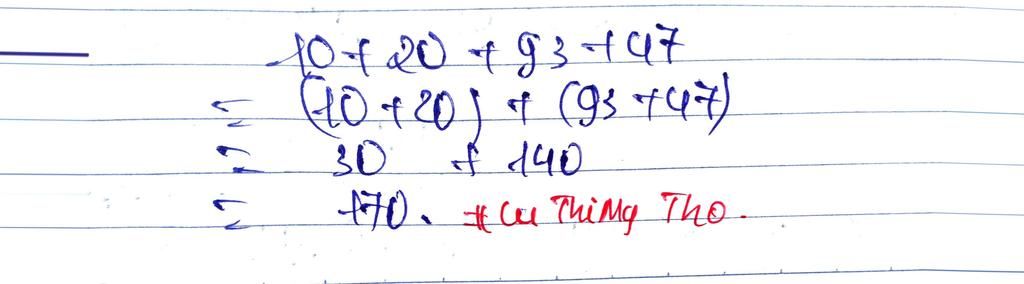 10 + 20 + 93 + 47
= (10 + 20) + (93 + 47)
= 30 + 140
= 170. #Cu Thi My Tho.